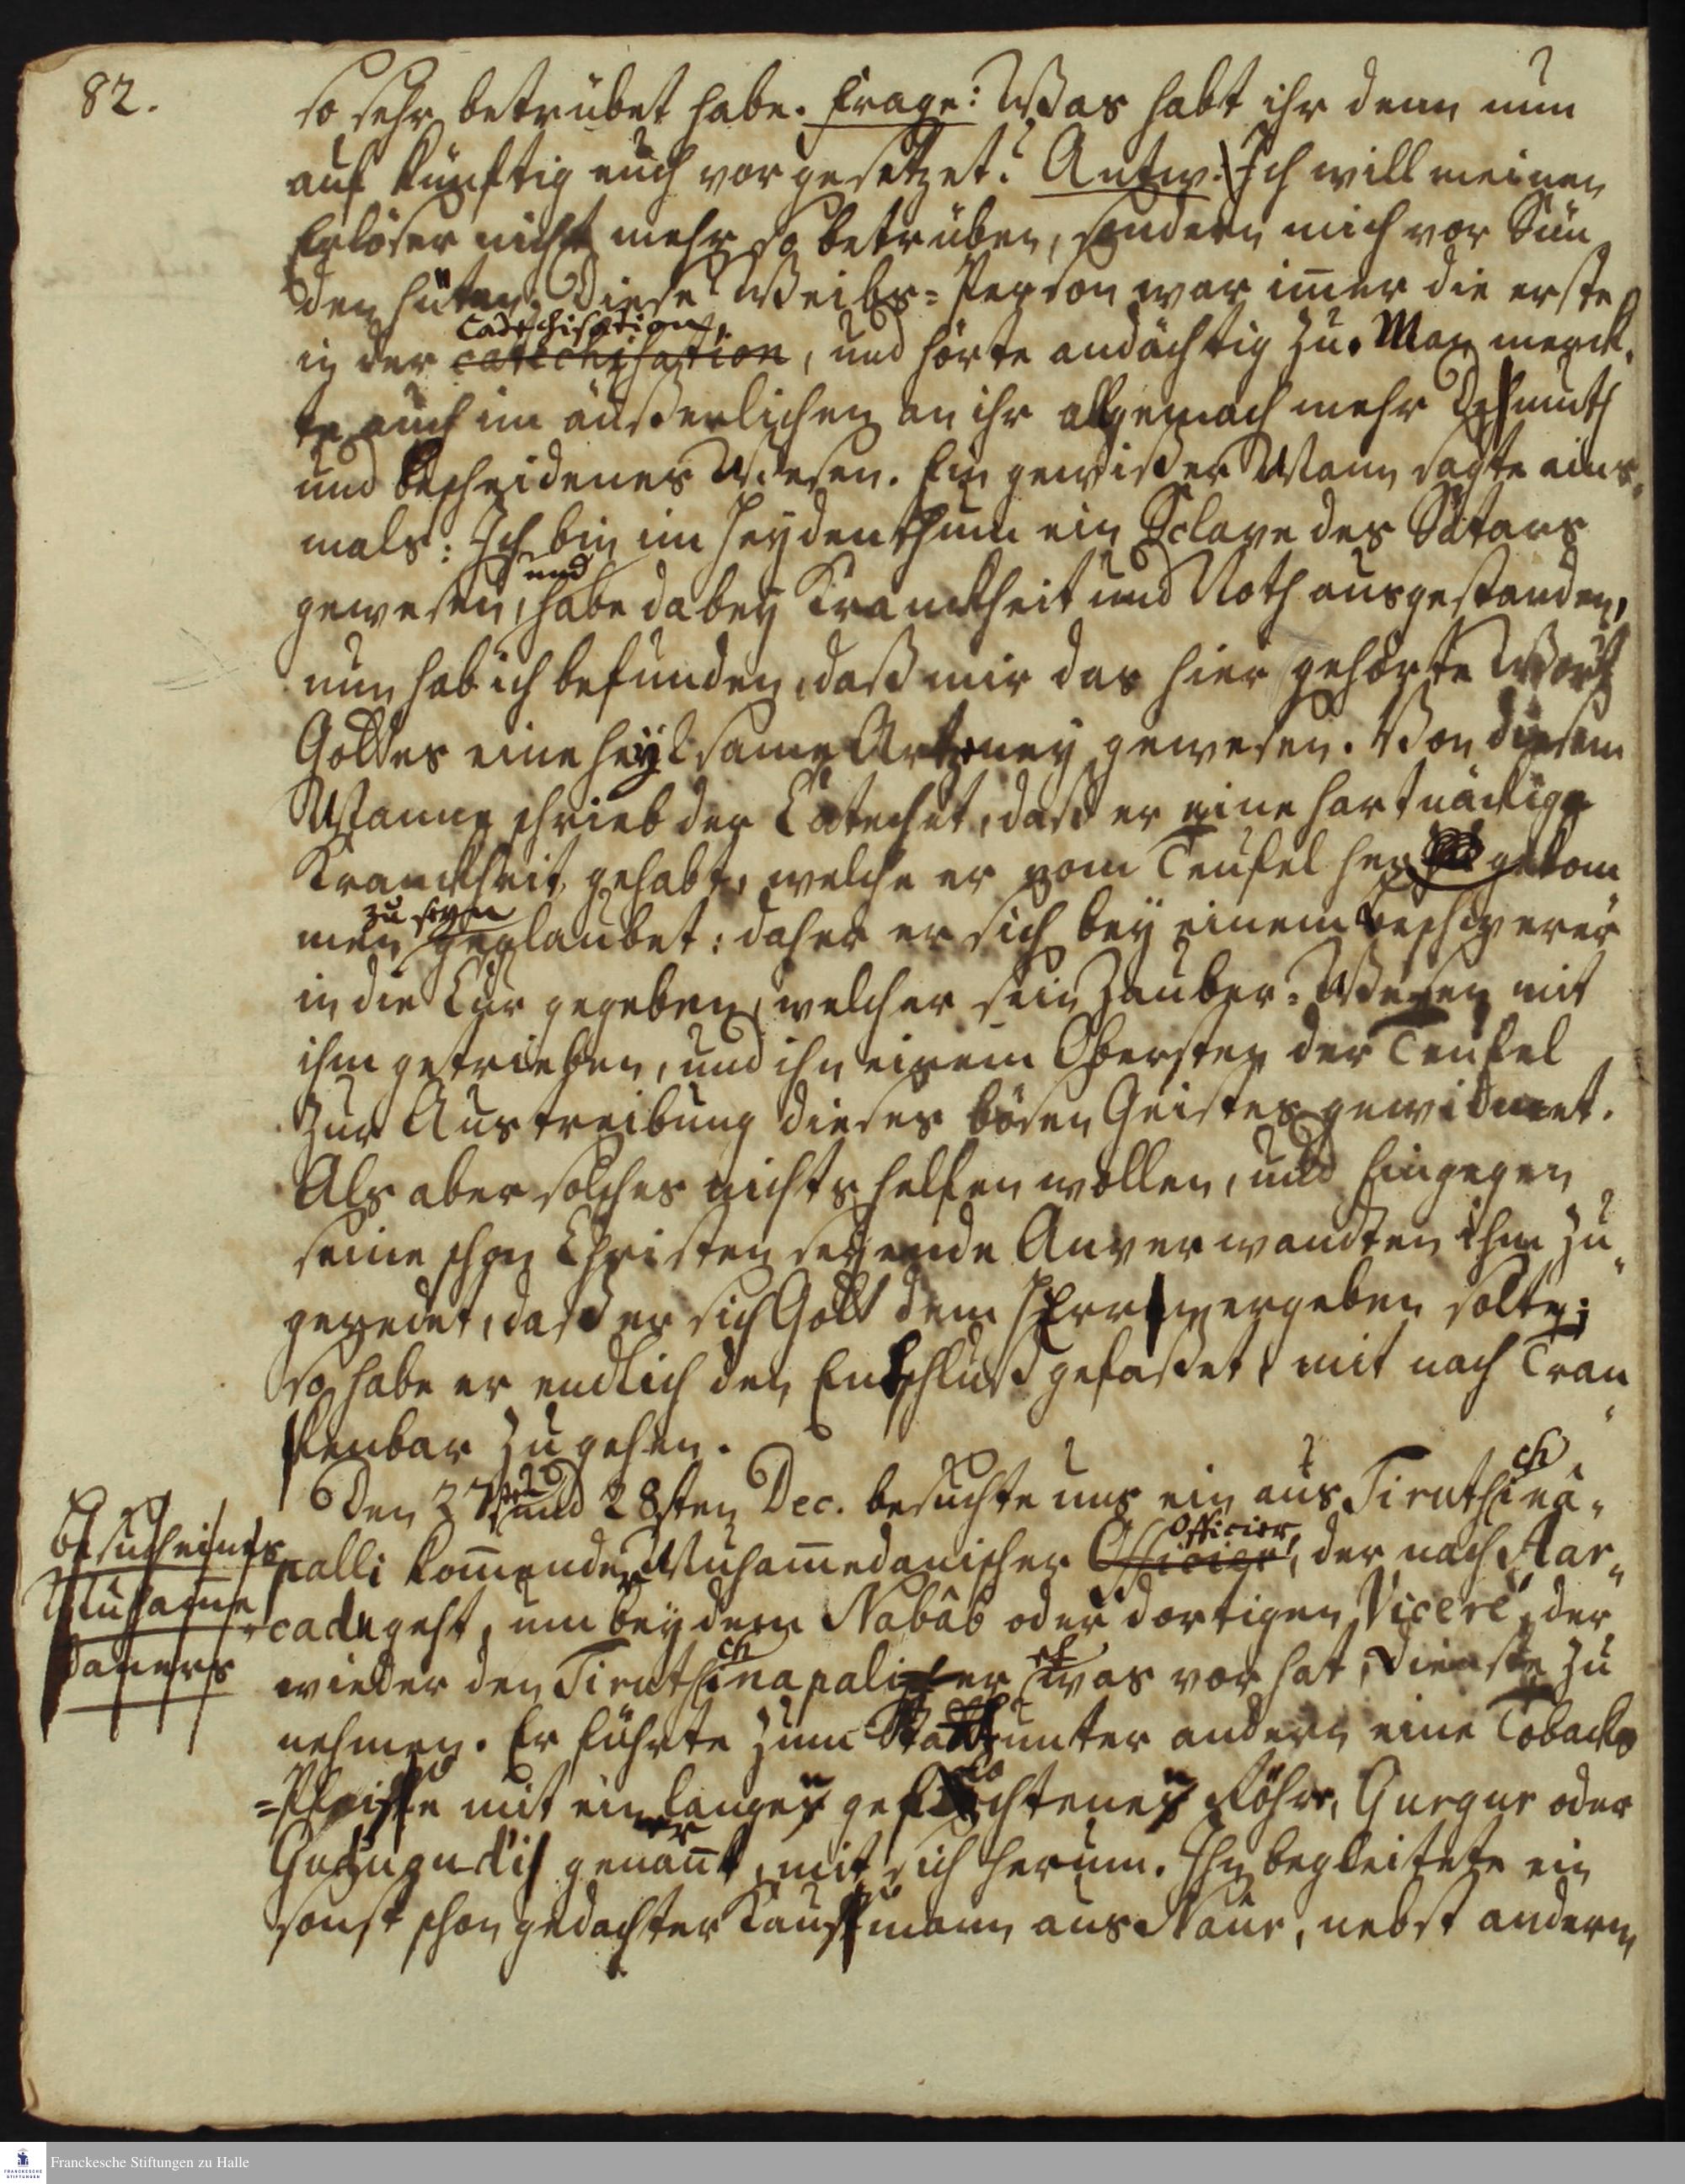 82.
so sehr betrübet habe. Frage: Was habt ihr denn nun
auf künftig euch vorgesetzet? Antw: Ich will meinen
Erlöser nicht mehr so betrüben, sondern mich vor Sün
den hüten. Diese Weibs-Person war im̄er die erste
in der catechisation Catechisation, und hörte andächtig zu. Man merck-
te auch im äußerlichen an ihr allgemach mehr Demuth
und bescheidenes Wesen. Ein gewißer Mann sagte eins-
mals: Ich bin im Heydenthum ein Sclave des Satans
gewesen, und habe dabey Kranckheit und Noth ausgestanden,
nun hab ich befunden, daß mir das hier gehörte Wort
Gottes eine heylsame Artzney gewesen. Von diesem
Manne schrieb der Catechet, daß er eine hartnäckige
Kranckheit gehabt, welche er vom Teufel her gekom
men zu seyn geglaubet: daher er sich bey einem Beschwerer
in die Cur gegeben, welcher sein Zauber-Wesen mit
ihm getrieben, und ihn einem Obersten der Teufel
zur Austreibung dieses bösen Geistes gewidmet.
Als aber solches nichts helfen wollen, und hingegen
seine schon Christen seyende Anverwandten ihm zu-
geredet, daß er sich Gott dem HErrn ergeben solte;
so habe er endlich den Entschluß gefaßet, mit nach Tran-
kenbar zu gehen.
Den 27sten und 28sten Dec. besuchte uns ein aus Tirutschinâ-
Besuch eines
Muham̄e-
daners
palli kom̄ender Muham̄edanischer Officier Officier, der nach Aar-
cadu geht, um bey dem Nabâb oder dortigen Viceré, der
wieder den Tirutschinapalier etwas vor hat, Dienste zu
nehmen. Er führte zum Staat unter andern eine Tobacks
=Pfeiffe mit einer langen geflochtenen Röhre, Gurgur oder
Gudugudi genan̄t, mit sich herum. Ihn begleitete ein
sonst schon gedachter Kauffmann aus Naûr, nebst andern
Franckesche Stiftungen zu Halle